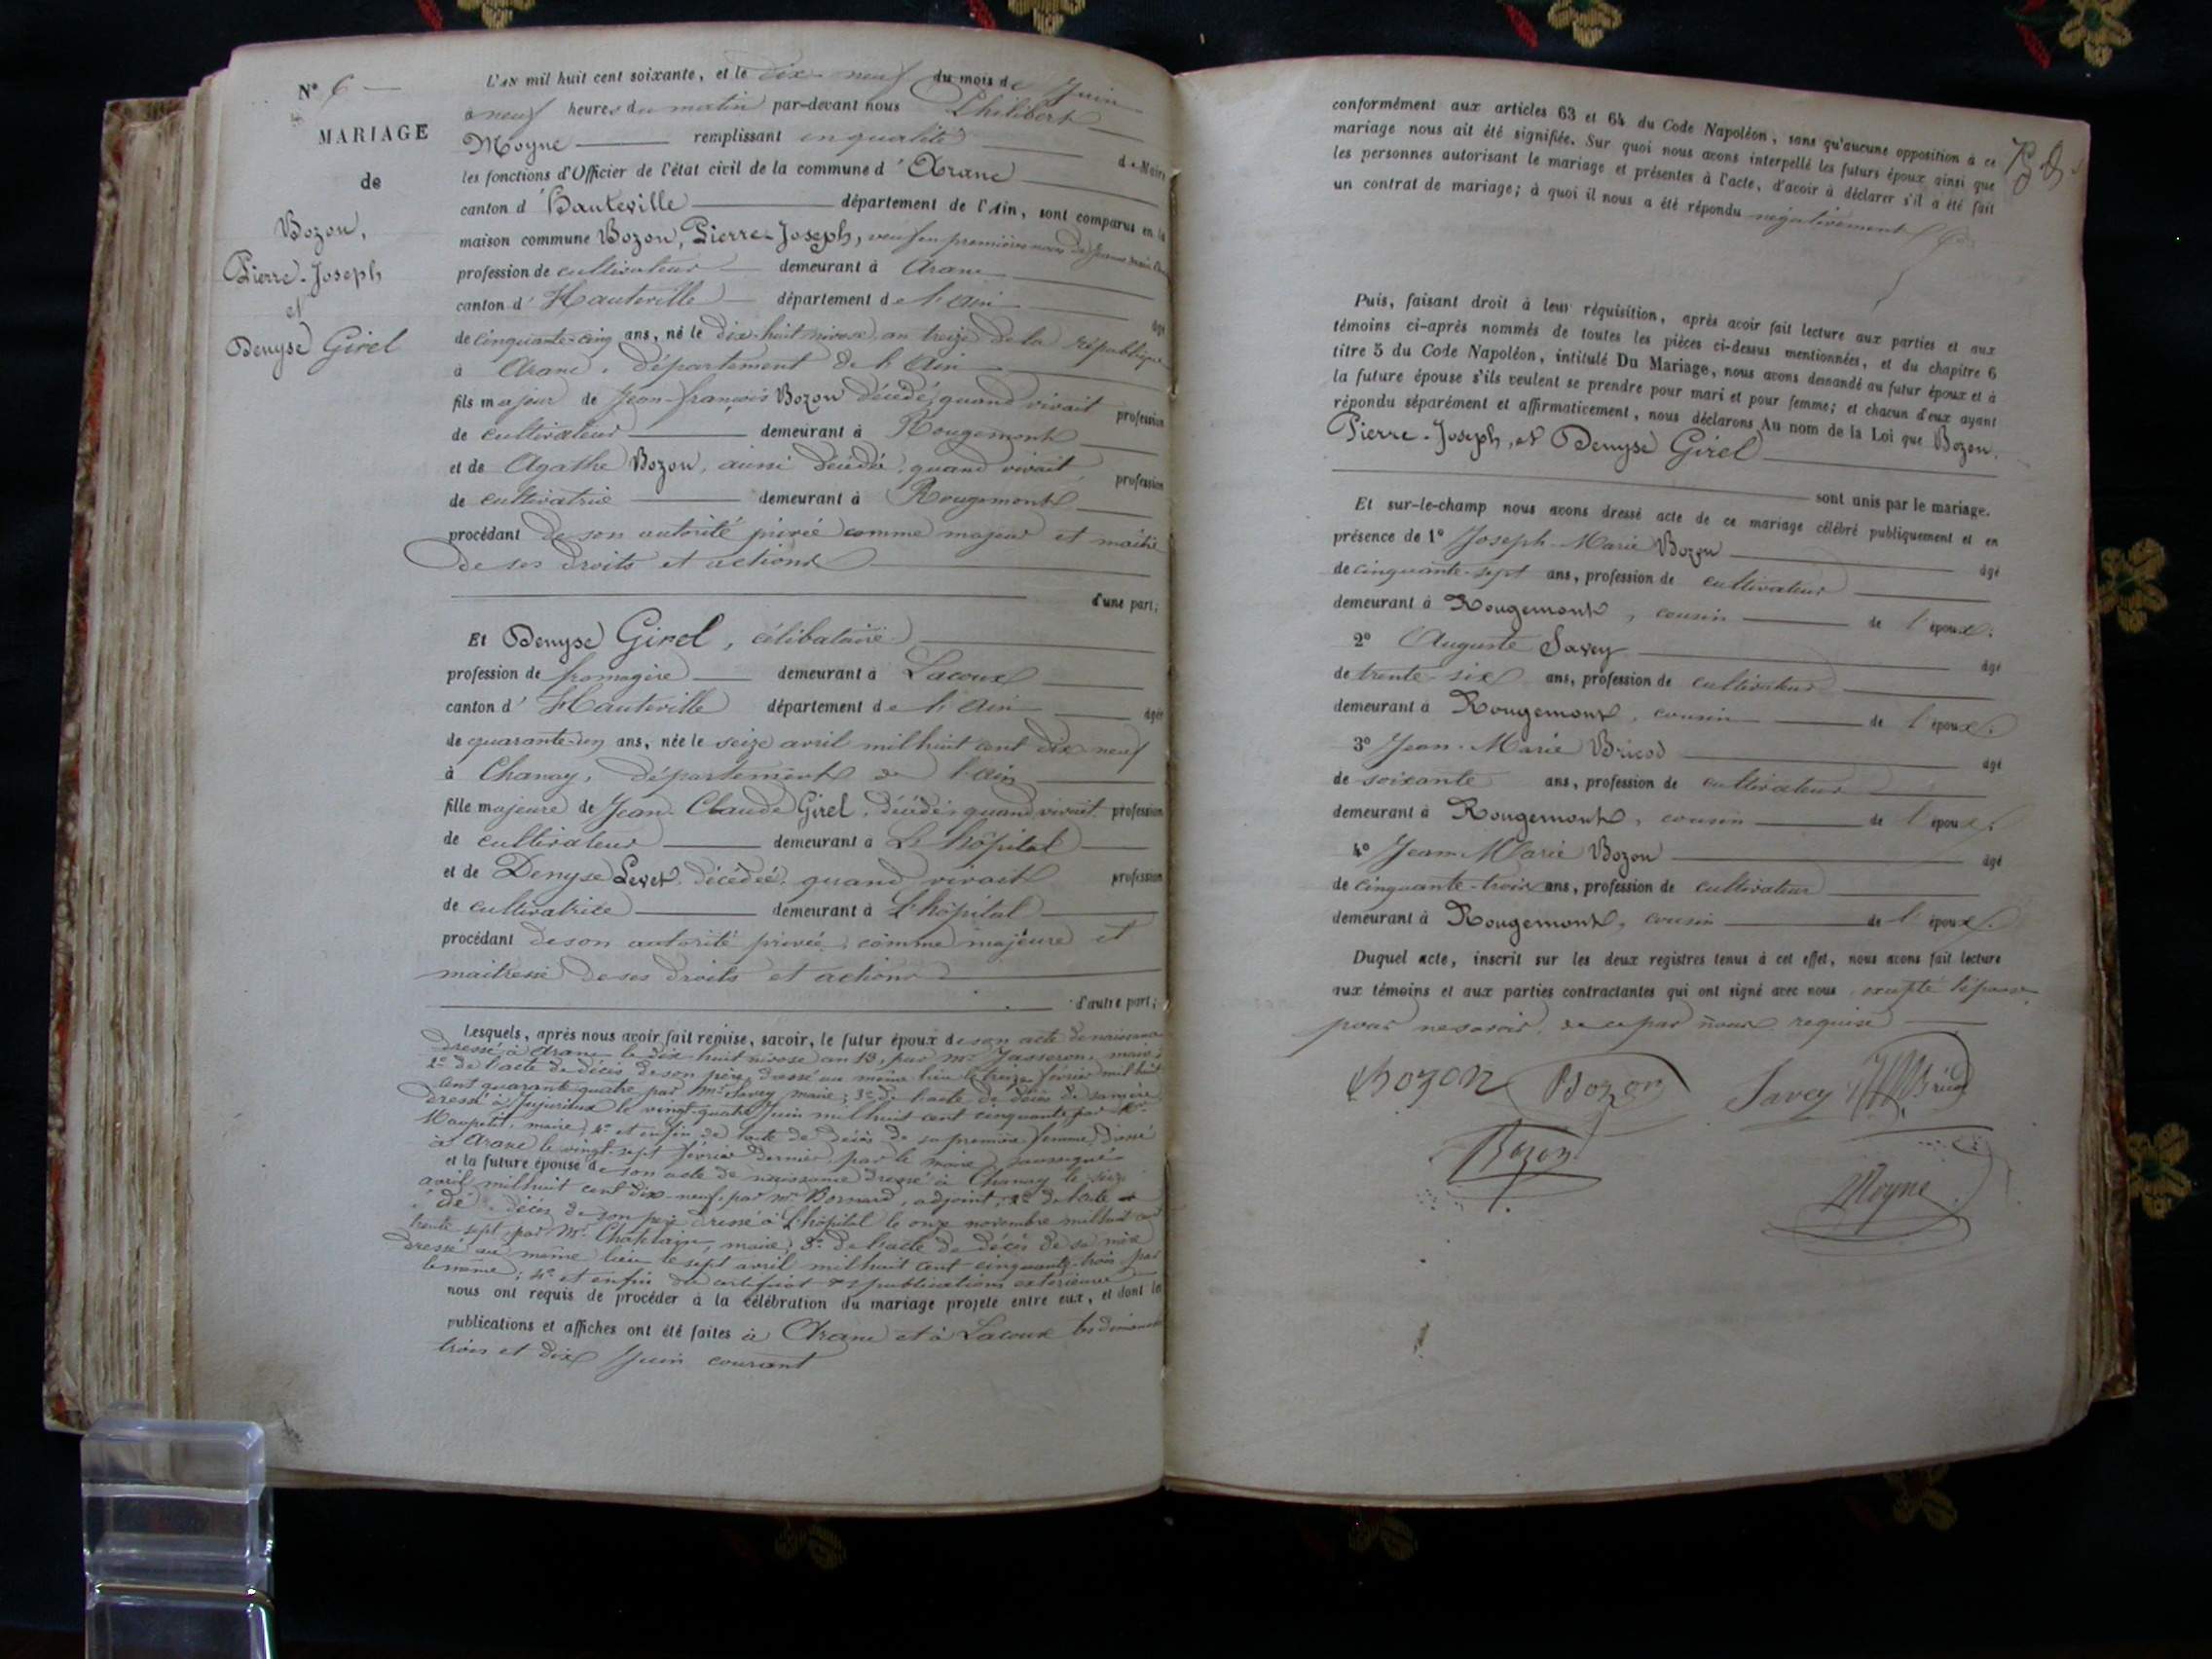 N° 6
MARIAGE
de
Bozon,
Pierre-Joseph
et
Denyse Girel
L'AN mil huit cent soixante, et le dix-neuf du mois de Juin
à neuf heures du matin par-devant nous Philibert
Moyne remplissant en qualité de Maire
les fonctions d'Officier de l'état civil de la commune d'Aranc
canton d'Hauteville département de l'Ain, sont comparus en la
maison commune Bozon, Pierre-Joseph, veuf en premières noces de Jeanne Marie
profession de cultivateur demeurant à Aranc
canton d'Hauteville département de l'Ain âgé
de cinquante-cinq ans, né le dix-huit nivose an treize de la république
à Aranc, département de l'Ain
fils majeur de Jean-françois Bozon décédé, quand vivait profession
de cultivateur demeurant à Rougemont
et de Agathe Bozon, aussi décédée, quand vivait profession
de cultivatrice demeurant à Rougemont
procédant de son autorité privée comme majeur et maître
de ses droits et actions
d'une part;
Et Denyse Girel, célibataire
profession de fromagère demeurant à Lacoux
canton d'Hauteville département de l'Ain âgée
de quarante-un ans, née le seize avril mil huit cent dix-neuf
à Chanay, département de l'Ain
fille majeure de Jean-Claude Girel, décédé, quand vivait profession
de cultivateur demeurant à L'hôpital
et de Denyse Levet, décédée, quand vivait profession
de cultivatrice demeurant à L'hôpital
procédant de son autorité privée, comme majeure et
maitresse de ses droits et actions
d'autre part;
Lesquels, après nous avoir fait remise, savoir, le futur époux de son acte de naissance
dressé à Aranc le dix huit nivose an 13, par Mr Jasseron, maire;
2° de l'acte de décès de son père, dressé au même lieu le treize février mil huit
cent quarante-quatre, par Mr Savey, maire; 3° de l'acte de décès de sa mère
dressé à Jujurieux le vingt-quatre juin mil huit cent cinquante par Mr
maire; 4° et enfin de l'acte de décès de sa première femme, dressé
à Aranc le vingt-sept février dernier, par le maire soussigné
et la future épouse de son acte de naissance dressé à Chanay le seize
avril mil huit cent dix-neuf, par Mr Bornard, adjoint; 2° de l'acte
de décès de son père dressé à L'hôpital le onze novembre mil huit cent
trente-sept, par Mr Chapelain, maire; 3° de l'acte de décès de sa mère
dressé au même lieu le sept avril mil huit cent cinquante-trois par
le même; 4° et enfin du certificat des publications extérieures
nous ont requis de procéder à la célébration du mariage projeté entre eux, et dont les
publications et affiches ont été faites à Aranc et à Lacoux les dimanches
trois et dix Juin courant
conformément aux articles 63 et 64 du Code Napoléon, sans qu'aucune opposition à ce
mariage nous ait été signifiée. Sur quoi nous avons interpellé les futurs époux ainsi que
les personnes autorisant le mariage et présentes à l'acte, d'avoir à déclarer s'il a été fait
un contrat de mariage; à quoi il nous a été répondu négativement
Puis, faisant droit à leur réquisition, après avoir fait lecture aux parties et aux
témoins ci-après nommés de toutes les pièces ci-dessus mentionnées, et du chapitre 6
titre 5 du Code Napoléon, intitulé Du Mariage, nous avons demandé au futur époux et à
la future épouse s'ils veulent se prendre pour mari et pour femme; et chacun d'eux ayant
répondu séparément et affirmativement, nous déclarons Au nom de la Loi que Bozon,
Pierre-Joseph, et Denyse Girel
sont unis par le mariage.
Et sur-le-champ nous avons dressé acte de ce mariage célébré publiquement et en
présence de 1° Joseph-Marie Bozon âgé
de cinquante-sept ans, profession de cultivateur
demeurant à Rougemont, cousin de l'époux.
2° Auguste Savey âgé
de trente-six ans, profession de cultivateur
demeurant à Rougemont, cousin de l'époux.
3° Jean-Marie Bricod âgé
de soixante ans, profession de cultivateur
demeurant à Rougemont, cousin de l'époux.
4° Jean-Marie Bozon âgé
de cinquante-trois ans, profession de cultivateur
demeurant à Rougemont, cousin de l'époux.
Duquel acte, inscrit sur les deux registres tenus à cet effet, nous avons fait lecture
aux témoins et aux parties contractantes qui ont signé avec nous, excepté l'épouse,
pour ne savoir, de ce par nous requise
Bozon Bozon Savey Bricod
Bozon
Moyne